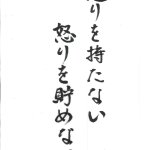 りを持たない
怒りを貯めな